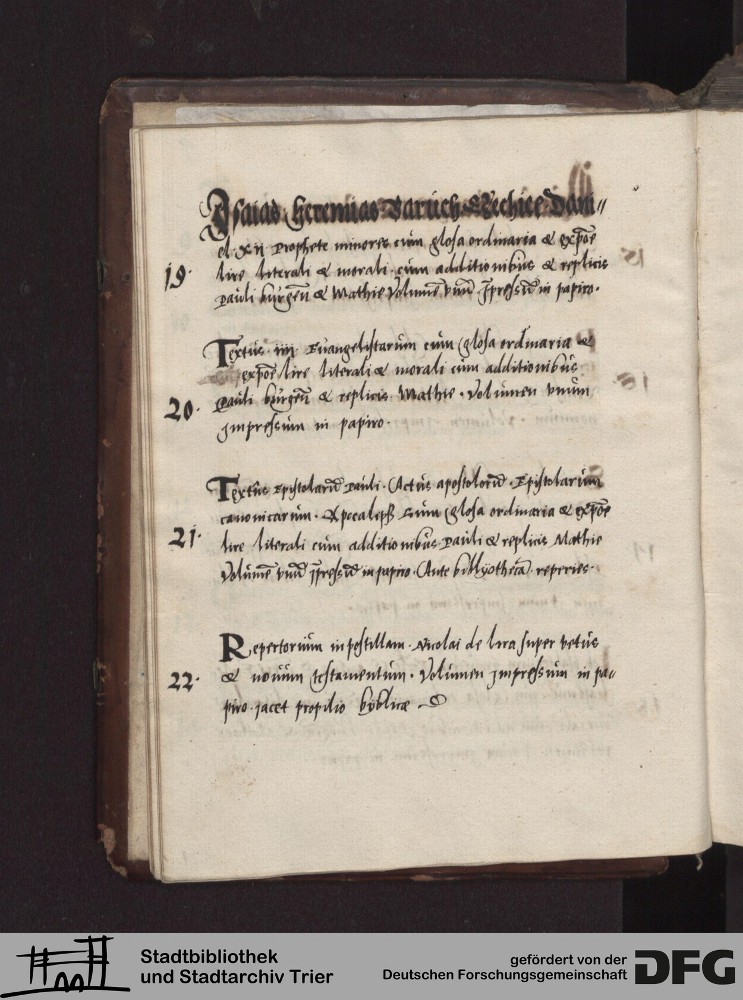 Isaias Heremias Baruch Ezechiee Dani//
el · XII Prophete minores cum glosa ordinaria & expōe
19· lire literali & morali · cum additionibus & replicis
Pauli burgeñ & Mathie Volumē vnū Jpressū in papiro·
Textus iiij Euangelistarum cum glosa ordinaria &
expōe lire literali & morali cum additionibus
20· Pauli burgeñ & replicis Mathie · Volumen vnum
jmpressum in papiro·
Textus Epistolarū Pauli · Actus apostolorū · Epistolarum
canonicarum · Apocalepß Cum glosa ordinaria & expōe
21· lire literali cum additionibus Pauli & replicis Mathie
Volumē vnū jpressū in papiro · Ante billyothecā reperies·
Repertorium in postillam · Nicolai de lira super vetus
22· & nouum testamentum · Volumen jmpressum in pa//
piro · jacet propilio byblicæ
Stadtbibliothek
und Stadtarchiv Trier
gefördert von der
Deutschen Forschungsgemeinschaft
DFG